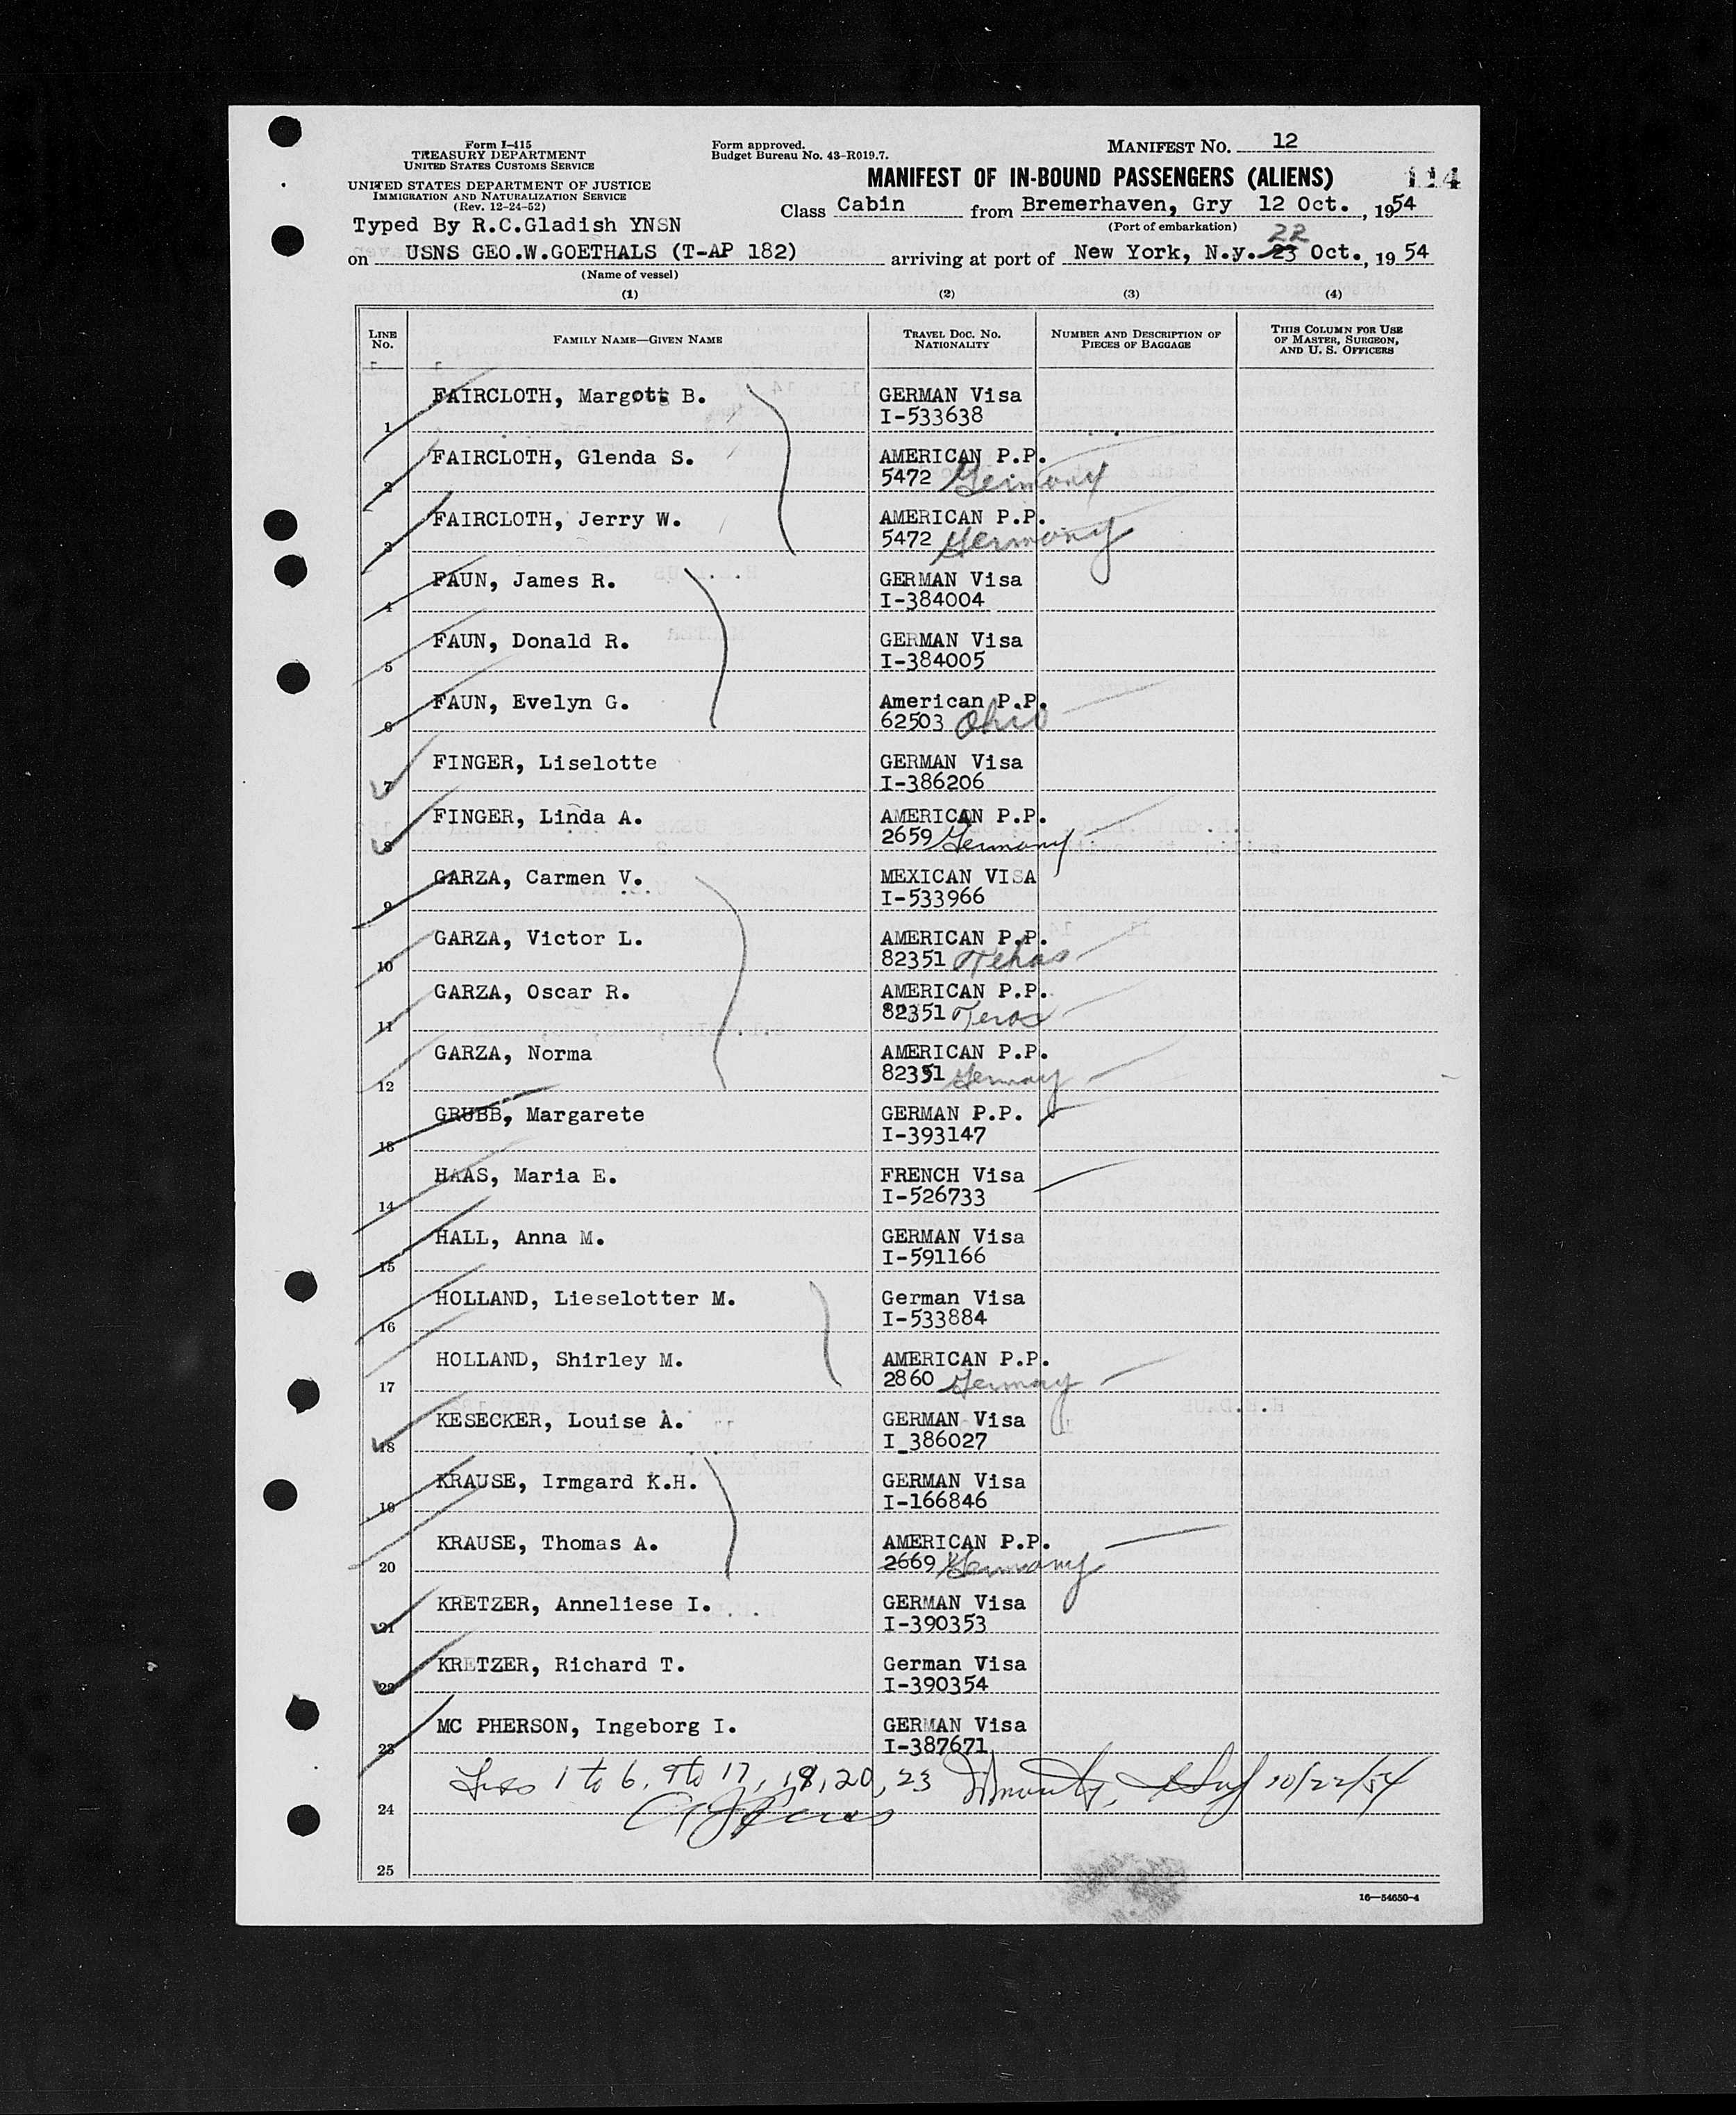 Form I-415
TREASURY DEPARTMENT
UNITED STATES CUSTOMS SERVICE
UNITED STATES DEPARTMENT OF JUSTICE
IMMIGRATION AND NATURALIZATION SERVICE
(Rev. 12-24-52)
Typed By R.C.Gladish YNSN
Form approved.
Budget Bureau No. 43-R019.7.
MANIFEST NO. 12
MANIFEST OF IN-BOUND PASSENGERS (ALIENS) 114
Class Cabin from Bremerhaven, Gry 12 Oct., 1954
(Port of embarkation)
22
on USNS GEO.W.GOETHALS (T-AP 182) arriving at port of New York, N.y. 23 Oct., 19 54
(Name of vessel)
(1) (2) (3) (4)
LINE NO. FAMILY NAME—GIVEN NAME TRAVEL DOC. NO. NATIONALITY NUMBER AND DESCRIPTION OF PIECES OF BAGGAGE THIS COLUMN FOR USE OF MASTER, SURGEON, AND U. S. OFFICERS
1 FAIRCLOTH, Margott B. GERMAN Visa
I-533638
2 FAIRCLOTH, Glenda S. AMERICAN P.P.
5472 Germany
3 FAIRCLOTH, Jerry W. AMERICAN P.P.
5472 Germany
4 FAUN, James R. GERMAN Visa
I-384004
5 FAUN, Donald R. GERMAN Visa
I-384005
6 FAUN, Evelyn G. American P.P.
62503 Ohio
7 FINGER, Liselotte GERMAN Visa
I-386206
8 FINGER, Linda A. AMERICAN P.P.
2659 Germany
9 GARZA, Carmen V. MEXICAN VISA
I-533966
10 GARZA, Victor L. AMERICAN P.P.
82351 Texas
11 GARZA, Oscar R. AMERICAN P.P.
82351 Texas
12 GARZA, Norma AMERICAN P.P.
82351 Germany
13 GRUBB, Margarete GERMAN P.P.
I-393147
14 HAAS, Maria E. FRENCH Visa
I-526733
15 HALL, Anna M. GERMAN Visa
I-591166
16 HOLLAND, Lieselotter M. German Visa
I-533884
17 HOLLAND, Shirley M. AMERICAN P.P.
2860 Germany
18 KESECKER, Louise A. GERMAN Visa
I_386027
19 KRAUSE, Irmgard K.H. GERMAN Visa
I-166846
20 KRAUSE, Thomas A. AMERICAN P.P.
2669 Germany
21 KRETZER, Anneliese I. GERMAN Visa
I-390353
22 KRETZER, Richard T. German Visa
I-390354
23 MC PHERSON, Ingeborg I. GERMAN Visa
I-387671
1 to 6, 9 to 17, 19, 20, 23 10/22/54
24
25
16—54650-4